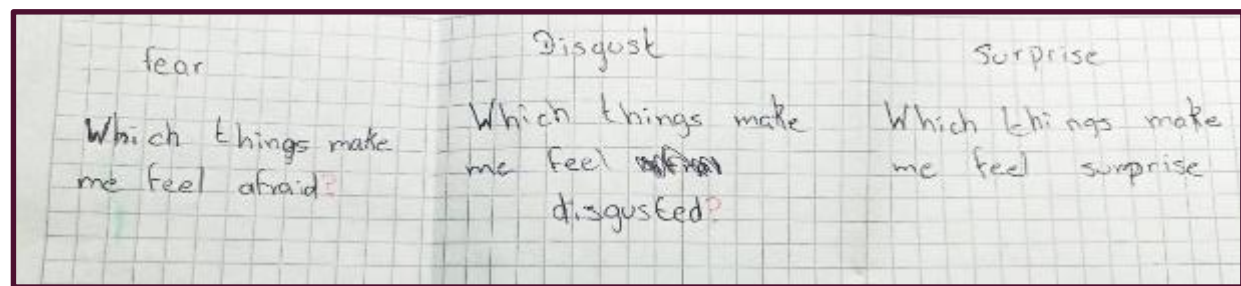 fear
Which things make
me feel afraid?
Disgust
Which things make
me feel
disgusted?
Surprise
Which things make
me feel surprise